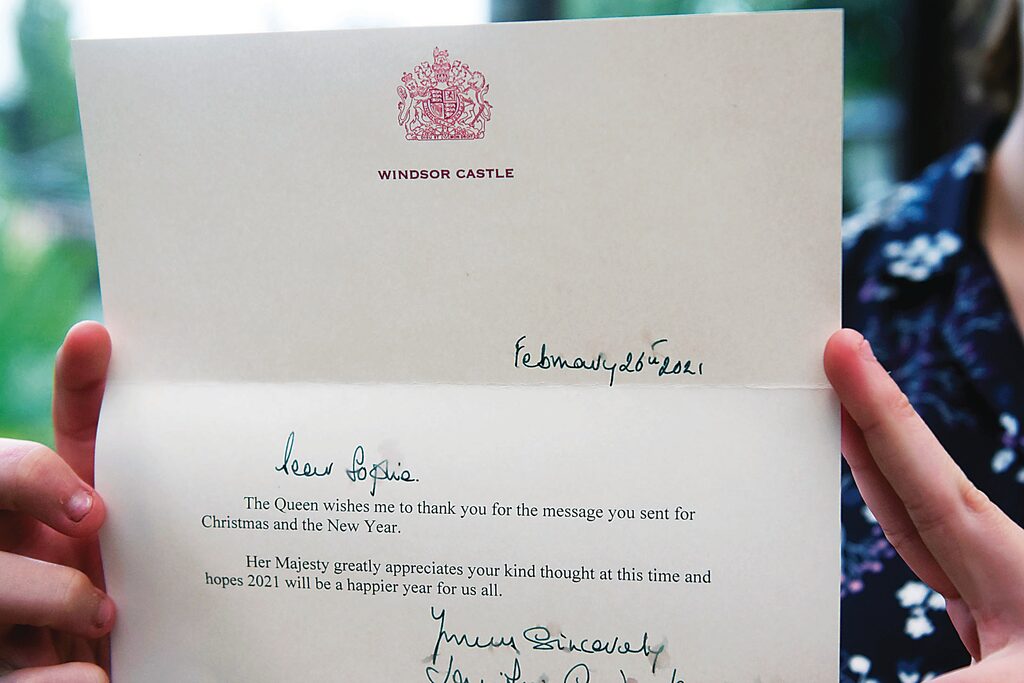 WINDSOR CASTLE
February 26th 2021
Dear Sophia.
The Queen wishes me to thank you for the message you sent for
Christmas and the New Year.
Her Majesty greatly appreciates your kind thought at this time and
hopes 2021 will be a happier year for us all.
Yours Sincerely